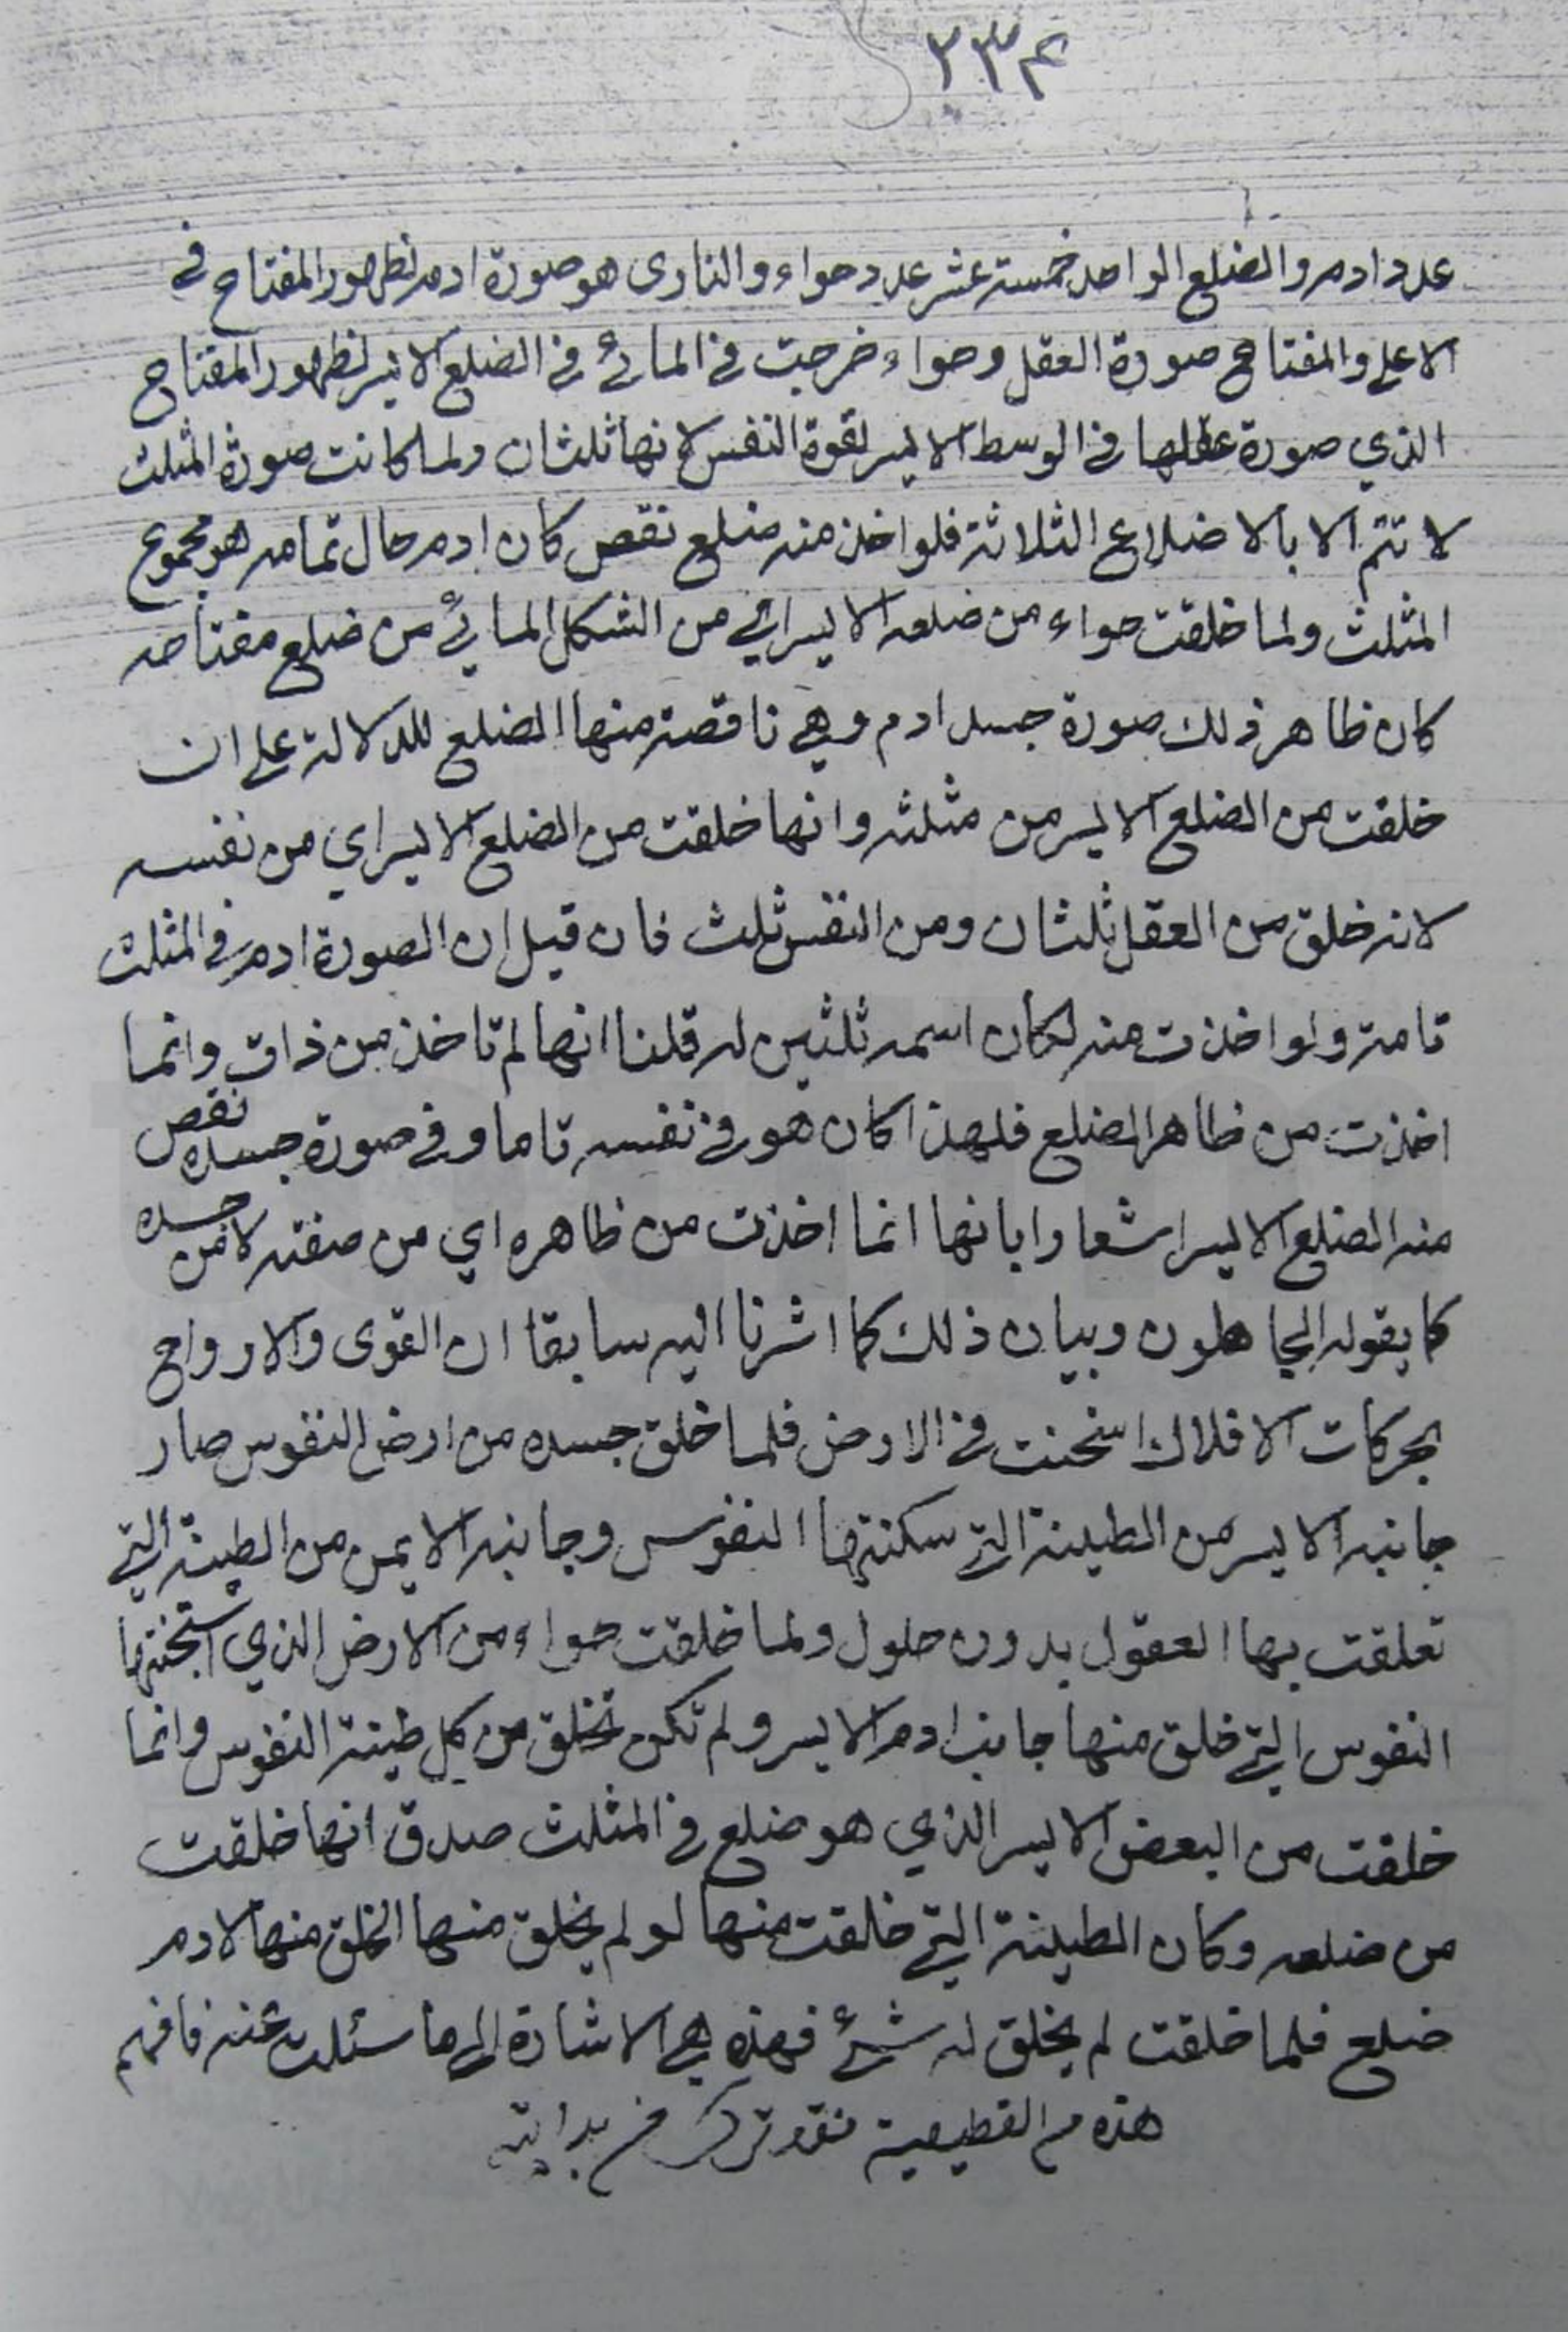 ٢٣٤
عدد ادم والضلع الواحد خمسة عشر عدد حواء والنارى هو صورة ادم لظهور المفتاح في
الاعلى والمفتاح صورة العقل وحواء خرجت في المائي في الضلع الايسر لظهور المفتاح
الذي صورة عقلها في الوسط الايسر لقوة النفس لانها ثلثان ولما كانت صورة المثلث
لا تتم الا بالاضلاع الثلاثة فلو اخذ منه ضلع نقص كان ادم حال تمامه هو مجموع
المثلث ولما خلقت حواء من ضلعه الايسر اي من الشكل المائي من ضلع مفتاحه
كان ظاهر ذلك صورة جسد ادم وهي ناقصة منها الضلع للدلالة على ان
خلقت من الضلع الايسر من مثلثه وانها خلقت من الضلع الايسر اي من نفسه
لانه خلق من العقل ثلثان ومن النفس ثلث فان قيل ان الصورة ادم في المثلث
تامة ولو اخذت منه لكان اسمه ثلثين له قلنا انها لم تاخذ من ذاته وانما
اخذت من ظاهر الضلع فلهذا كان هو في نفسه تاما وفي صورة جسده نقص
منه الضلع الايسر اشعارا بانها انما اخذت من ظاهره اي من صفته لا من جسده
كما يقوله الجاهلون وبيان ذلك كما اشرنا اليه سابقا ان القوى والارواح
بحركات الافلاك اسخنت في الارض فلما خلق جسده من ارض النفوس صار
جانبه الايسر من الطينة التي سكنتها النفوس وجانبه الايمن من الطينة التي
تعلقت بها العقول بدون حلول ولما خلقت حواء من الارض الذي اسخنتها
النفوس التي خلق منها جانب ادم الايسر ولم تكن تخلق من كل طينة النفوس وانما
خلقت من البعض الايسر الذي هو ضلع في المثلث صدق انها خلقت
من ضلعه وكان الطينة التي خلقت منها لو لم يخلق منها الخلق منها لادم
ضلع فلما خلقت لم يخلق له شئ فهذه هي الاشارة الى ما سئلت عنه فافهم
هذه م القطيفية